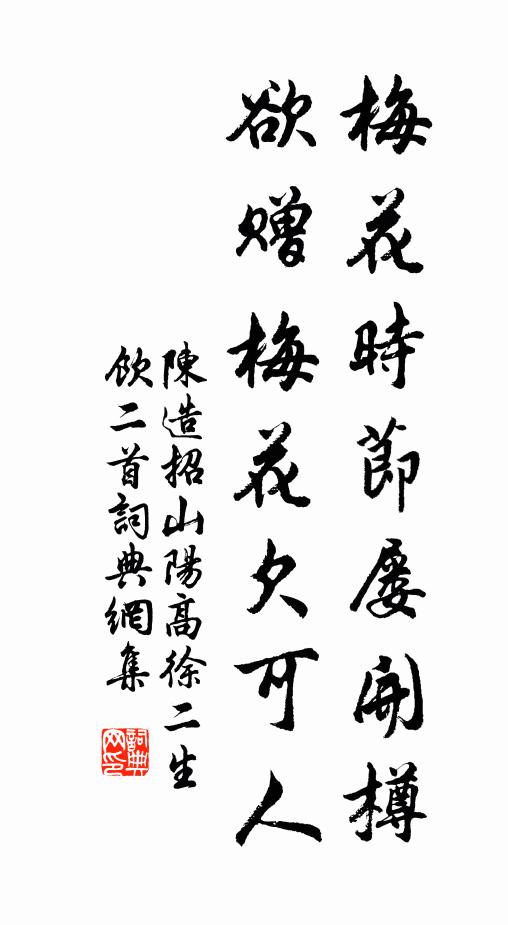 梅花時節屡開樽
欲贈梅花欠可人
陳造招山陽高徐二生
飲二首詞典網集
詞典网印